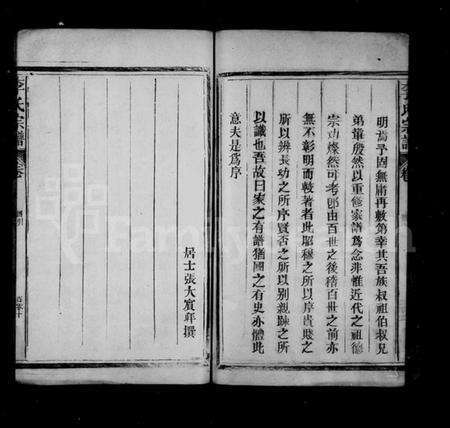 明焉予固無庸再數第幸其吾族叔祖伯叔兄
弟輩殷然以重修家譜爲念非惟近代之祖德
宗功燦然可考郎由百世之後稽百世之前亦
無不彰明而較著者此昭穆之所以序貴賤之
所以辨長幼之所序賢否之所以别親踈之所
以識也吾故曰家之有譜猶國之有史亦體此
意夫是爲序
居士張大賓拜撰
李氏宗譜